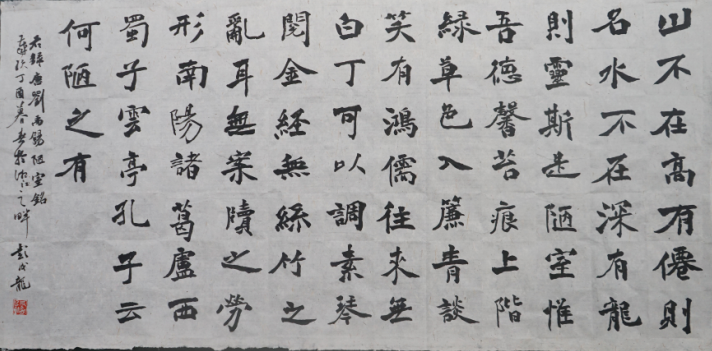 山不在高有僊則
名水不在深有龍
則靈斯是陋室惟
吾德馨苔痕上階
綠草色入簾青談
笑有鴻儒往來無
白丁可以調素琴
閱金經無絲竹之
亂耳無案牘之勞
形南陽諸葛廬西
蜀子雲亭孔子云
何陋之有
右錄唐劉禹錫陋室銘
歲次丁酉暮春於之畔 彭成龍